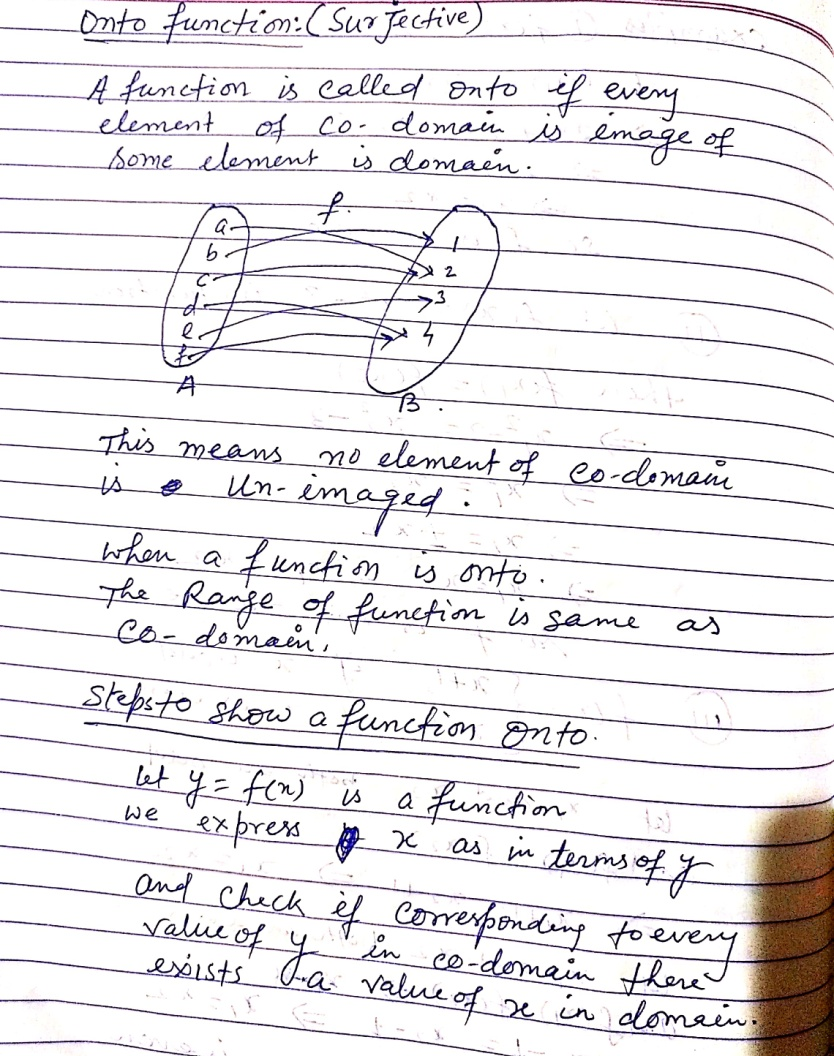 Onto function:(Surjective)
A function is called onto if every
element of co-domain is image of
some element is domain.
f.
a
b
c
d
e
f
A
1
2
3
4
B.
This means no element of co-domain
is Un-imaged.
when a function is onto.
The Range of function is same as
Co-domain.
Steps to show a function Onto.
let y = f(x) is a function
we express x as in terms of y
and check if corresponding to every
value of y in co-domain there
exists a value of x in domain.